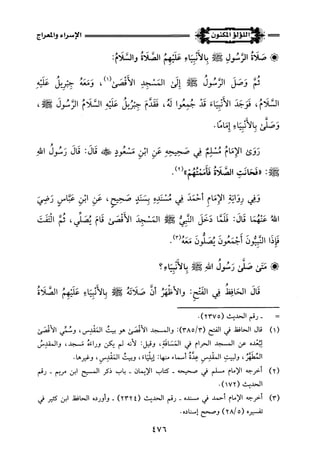 اللؤلؤ المكنون
الإسراء والمعراج
* صَلَاةُ الرَّسُولِ ﷺ بِالأَنْبِيَاءِ عَلَيْهِمُ الصَّلَاةُ وَالسَّلَامُ:
ثُمَّ وَصَلَ الرَّسُولُ ﷺ إِلَى المَسْجِدِ الأَقْصَى(١)، وَمَعَهُ جِبْرِيلُ عَلَيْهِ
السَّلَامُ، فَوَجَدَ الأَنْبِيَاءَ قَدْ جُمِعُوا لَهُ، فَقَدَّمَ جِبْرِيلُ عَلَيْهِ السَّلَامُ الرَّسُولَ ﷺ،
وَصَلَّى بِالأَنْبِيَاءِ إِمَامًا.
رَوَى الإِمَامُ مُسْلِمٌ فِي صَحِيحِهِ عَنِ ابْنِ مَسْعُودٍ ﷺ قَالَ: قَالَ رَسُولُ اللهِ
ﷺ: «فَحَانَتِ الصَّلَاةُ فَأَمَمْتُهُمْ»(٢).
وَفِي رِوَايَةِ الإِمَامِ أَحْمَدَ فِي مُسْنَدِهِ بِسَنَدٍ صَحِيحٍ، عَنِ ابْنِ عَبَّاسٍ رَضِيَ
اللهُ عَنْهُمَا قَالَ: فَلَمَّا دَخَلَ النَّبِيُّ ﷺ المَسْجِدَ الأَقْصَى قَامَ يُصَلِّي، ثُمَّ الْتَفَتَ
فَإِذَا النَّبِيُّونَ أَجْمَعُونَ يُصَلُّونَ مَعَهُ(٣).
* مَتَى صَلَّى رَسُولُ اللهِ ﷺ بِالأَنْبِيَاءِ؟
قَالَ الحَافِظُ فِي الفَتْحِ: وَالأَظْهَرُ أَنَّ صَلَاتَهُ ﷺ بِالأَنْبِيَاءِ عَلَيْهِمُ الصَّلَاةُ
= - رقم الحديث (٢٣٧٥).
(١) قال الحافظ في الفتح (٣/ ٣٨٥): والمسجد الأقصى هو بيتُ المَقْدِسِ، وسُمِّي الأقصى
لِبُعْدِهِ عن المسجد الحرام في المَسَافَةِ، وقيل: لأنه لم يكن وراءَهُ مَسجد، والمقدِسُ
المُطَهَّر، ولبيتِ المقدِسِ عِدَّةُ أسماء منها: إِيلْيَاء، وبيتُ المَقْدِسِ، وغيرها.
(٢) أخرجه الإمام مسلم في صحيحه - كتاب الإيمان - باب ذكر المسيح ابن مريم - رقم
الحديث (١٧٢).
(٣) أخرجه الإمام أحمد في مسنده - رقم الحديث (٢٣٢٤) - وأورده الحافظ ابن كثير في
تفسيره (٥/ ٢٨) وصحح إسناده.
٤٧٦